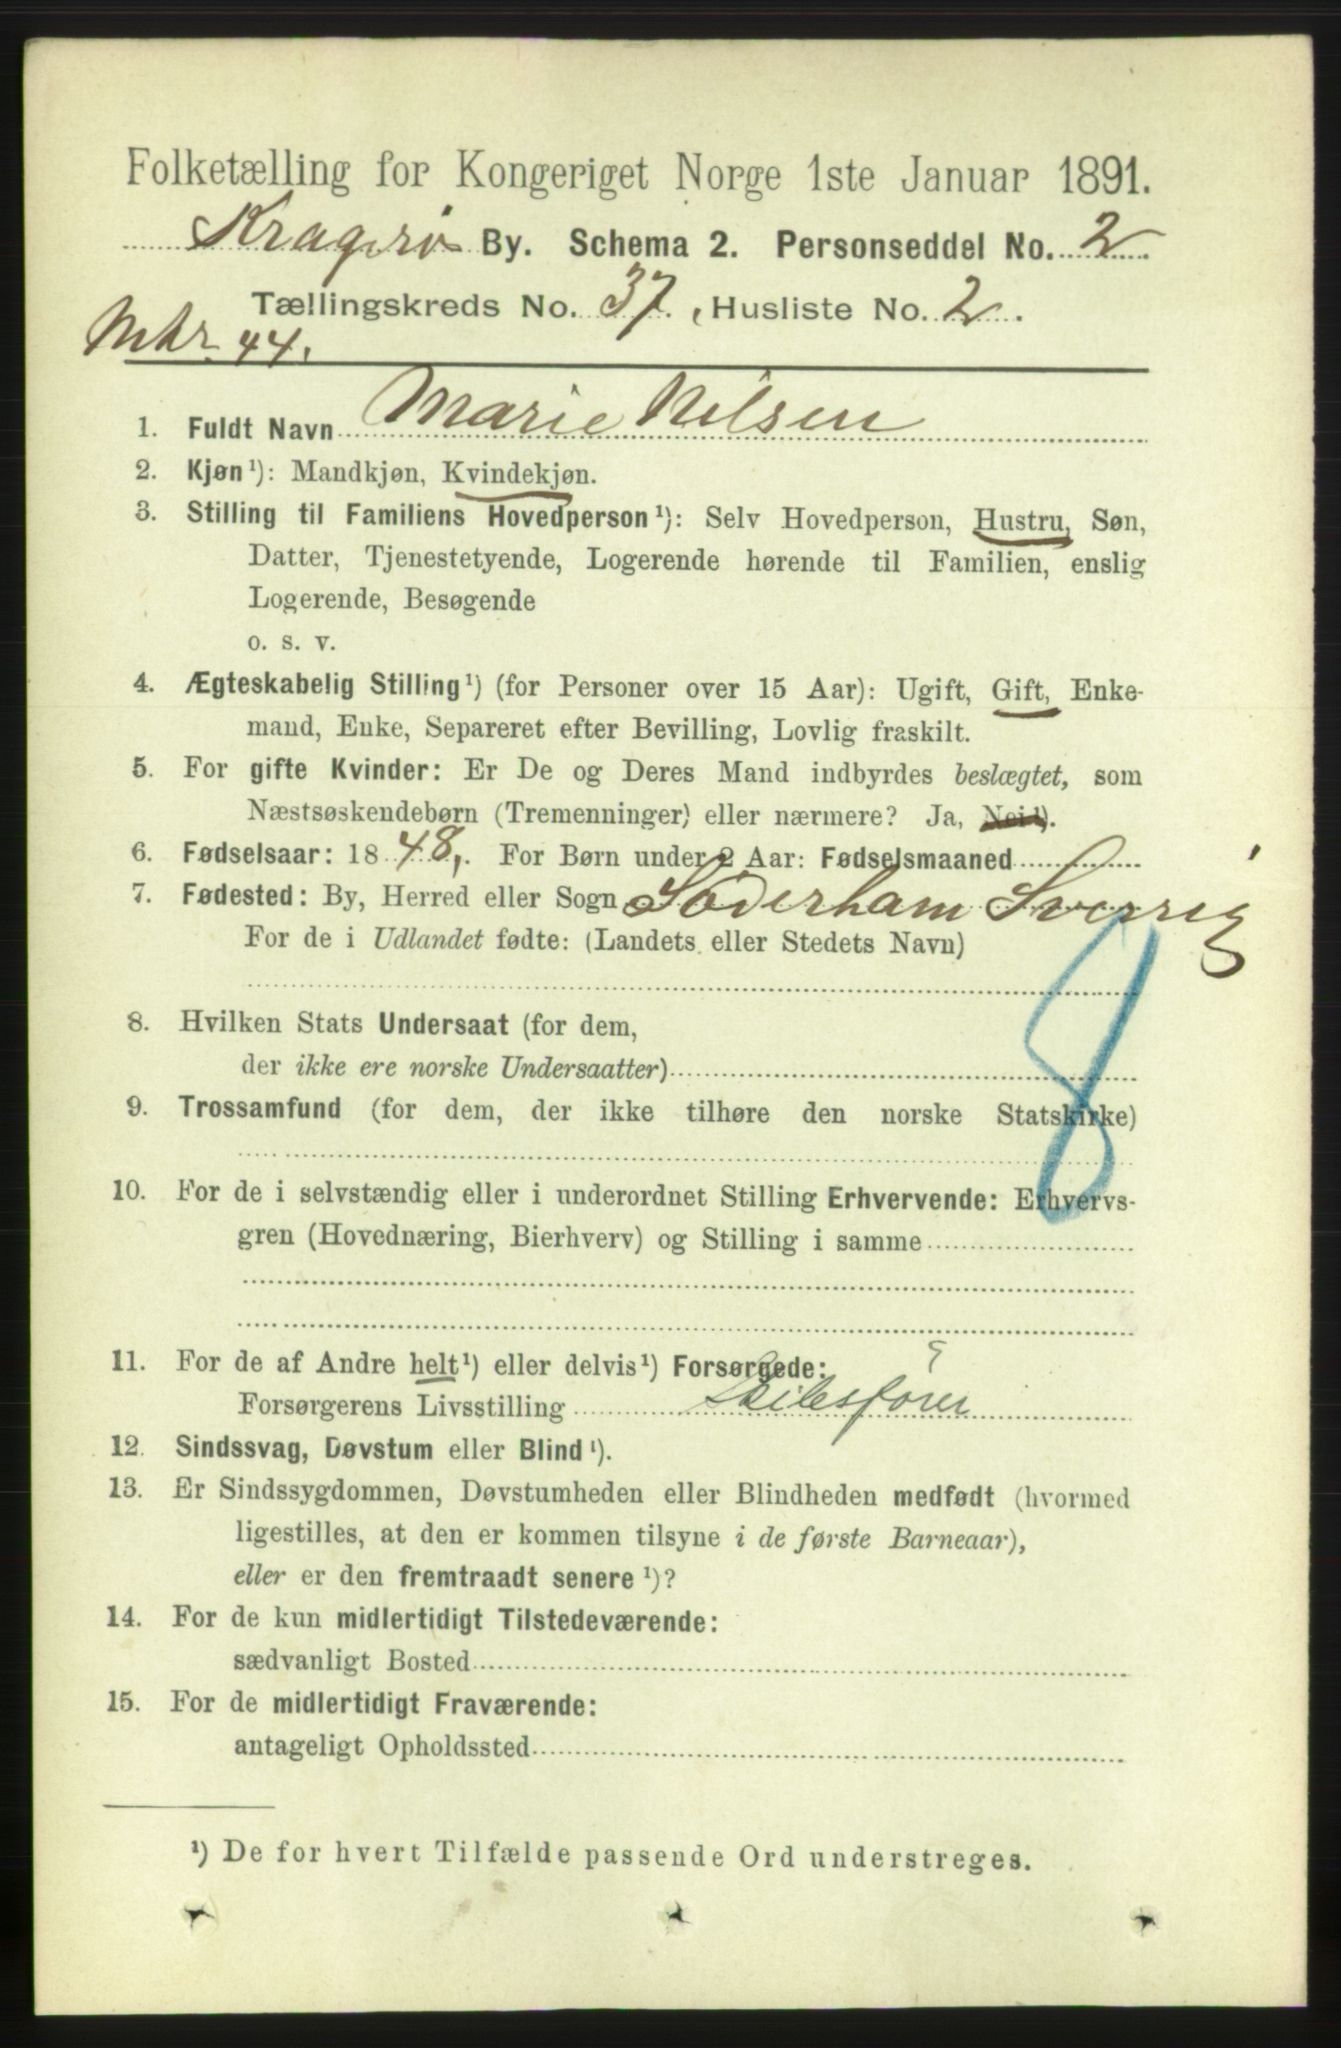 Folketælling for Kongeriget Norge 1ste Januar 1891.
Kragerø By. Schema 2. Personseddel No. 2
Tællingskreds No. 37. Husliste No. 2.
Mtr. 44.
1. Fuldt Navn Marie Nilsen
2. Kjøn¹): Mandkjøn, Kvindekjøn.
3. Stilling til Familiens Hovedperson¹): Selv Hovedperson, Hustru, Søn,
Datter, Tjenestetyende, Logerende hørende til Familien, enslig
Logerende, Besøgende
o. s. v.
4. Ægteskabelig Stilling¹) (for Personer over 15 Aar): Ugift, Gift, Enke-
mand, Enke, Separeret efter Bevilling, Lovlig fraskilt.
5. For gifte Kvinder: Er De og Deres Mand indbyrdes beslægtet, som
Næstsøskendebørn (Tremenninger) eller nærmere? Ja, Nei¹).
6. Fødselsaar: 1848,. For Børn under 2 Aar: Fødselsmaaned
7. Fødested: By, Herred eller Sogn Söderham Sverrig
For de i Udlandet fødte: (Landets eller Stedets Navn)
8
8. Hvilken Stats Undersaat (for dem,
der ikke ere norske Undersaatter)
9. Trossamfund (for dem, der ikke tilhøre den norske Statskirke)
10. For de i selvstændig eller i underordnet Stilling Erhvervende: Erhvervs-
gren (Hovednæring, Bierhverv) og Stilling i samme
11. For de af Andre helt¹) eller delvis¹) Forsørgede:
Forsørgerens Livsstilling Skibsfører
12. Sindssvag, Døvstum eller Blind¹).
13. Er Sindssygdommen, Døvstumheden eller Blindheden medfødt (hvormed
ligestilles, at den er kommen tilsyne i de første Barneaar),
eller er den fremtraadt senere¹)?
14. For de kun midlertidigt Tilstedeværende:
sædvanligt Bosted
15. For de midlertidigt Fraværende:
antageligt Opholdssted
¹) De for hvert Tilfælde passende Ord understreges.